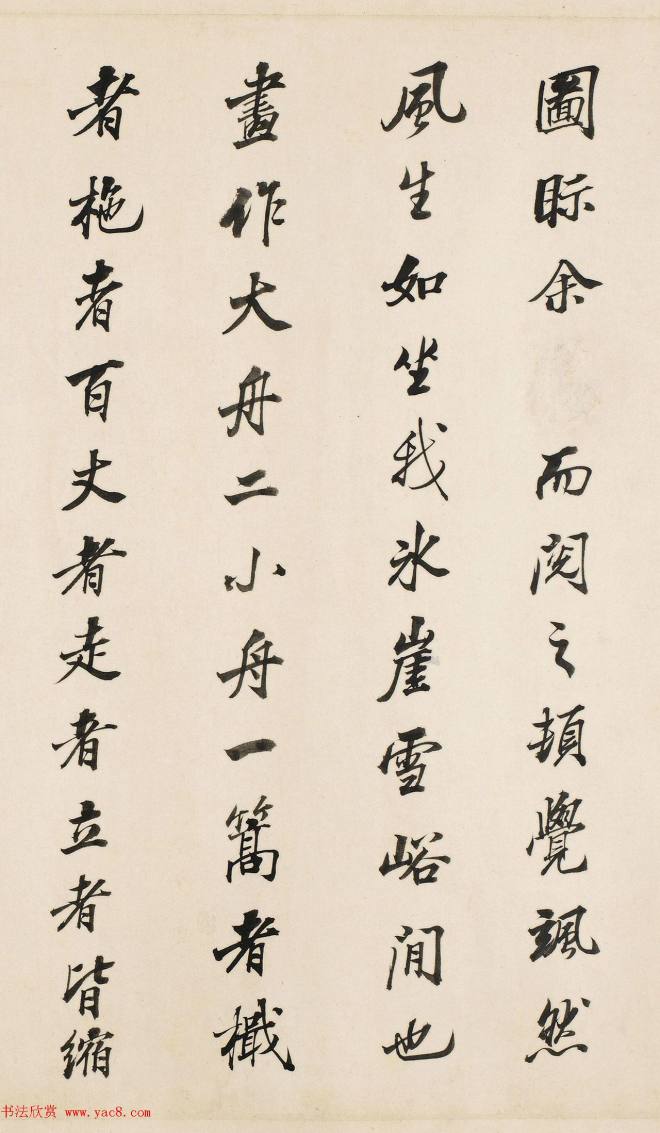 圖眎余而閱之頓覺颯然
風生如坐我冰崖雪峪間也
畫作大舟二小舟一篙者檝
者柂者百丈者走者立者皆縮
书法欣赏 www.yac8.com